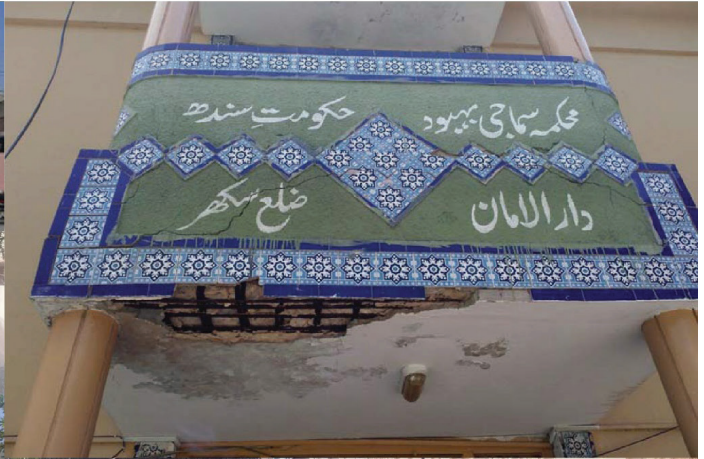 محکمہ سماجی بہبود حکومتِ سندھ
دار الامان ضلع سکھر